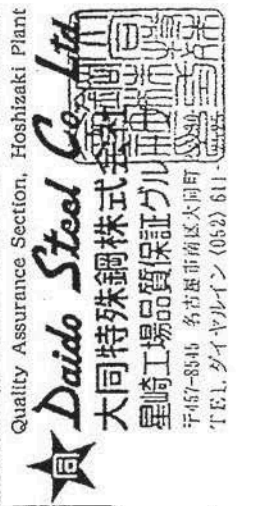 Quality Assurance Section, Hoshizaki Plant
同
Daido Steel Co., Ltd
大同特殊鋼株式会社
星崎工場品質保証グル
〒457-8545 名古屋市南区大同町
TEL ダイヤルイン (052) 611-